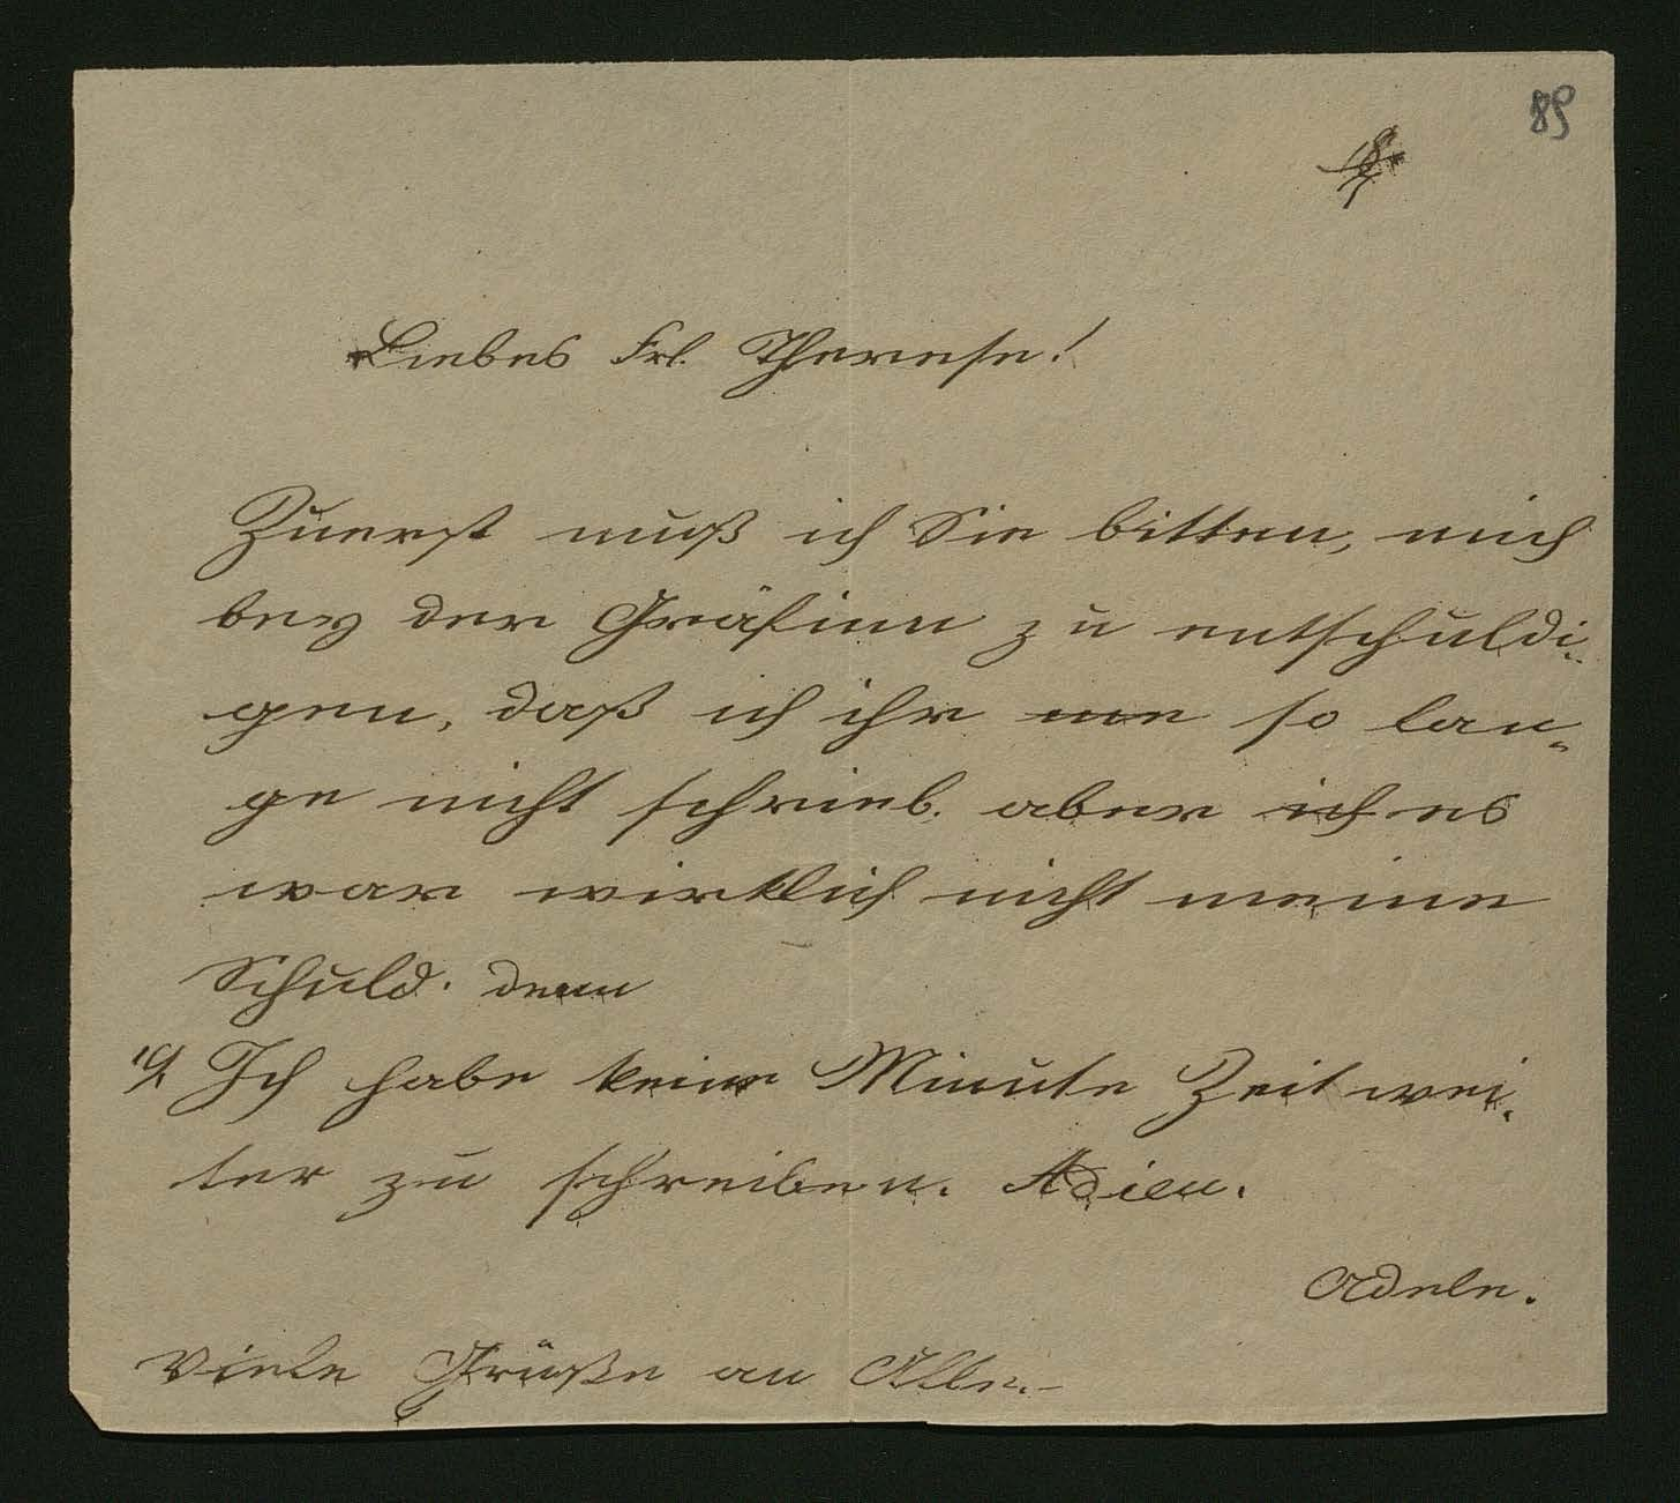 89
Liebes Frl. Therese!
Zuerst muß ich Sie bitten, mich
bey der Gräfinn zu entschuldi-
gen, daß ich ihr so lan-
ge nicht schrieb. aber ich es
war wirklich nicht meine
Schuld. denn
Ich habe keine Minute Zeit wei-
ter zu schreiben. Adieu.
Adele.
Viele Grüße an Alle.-